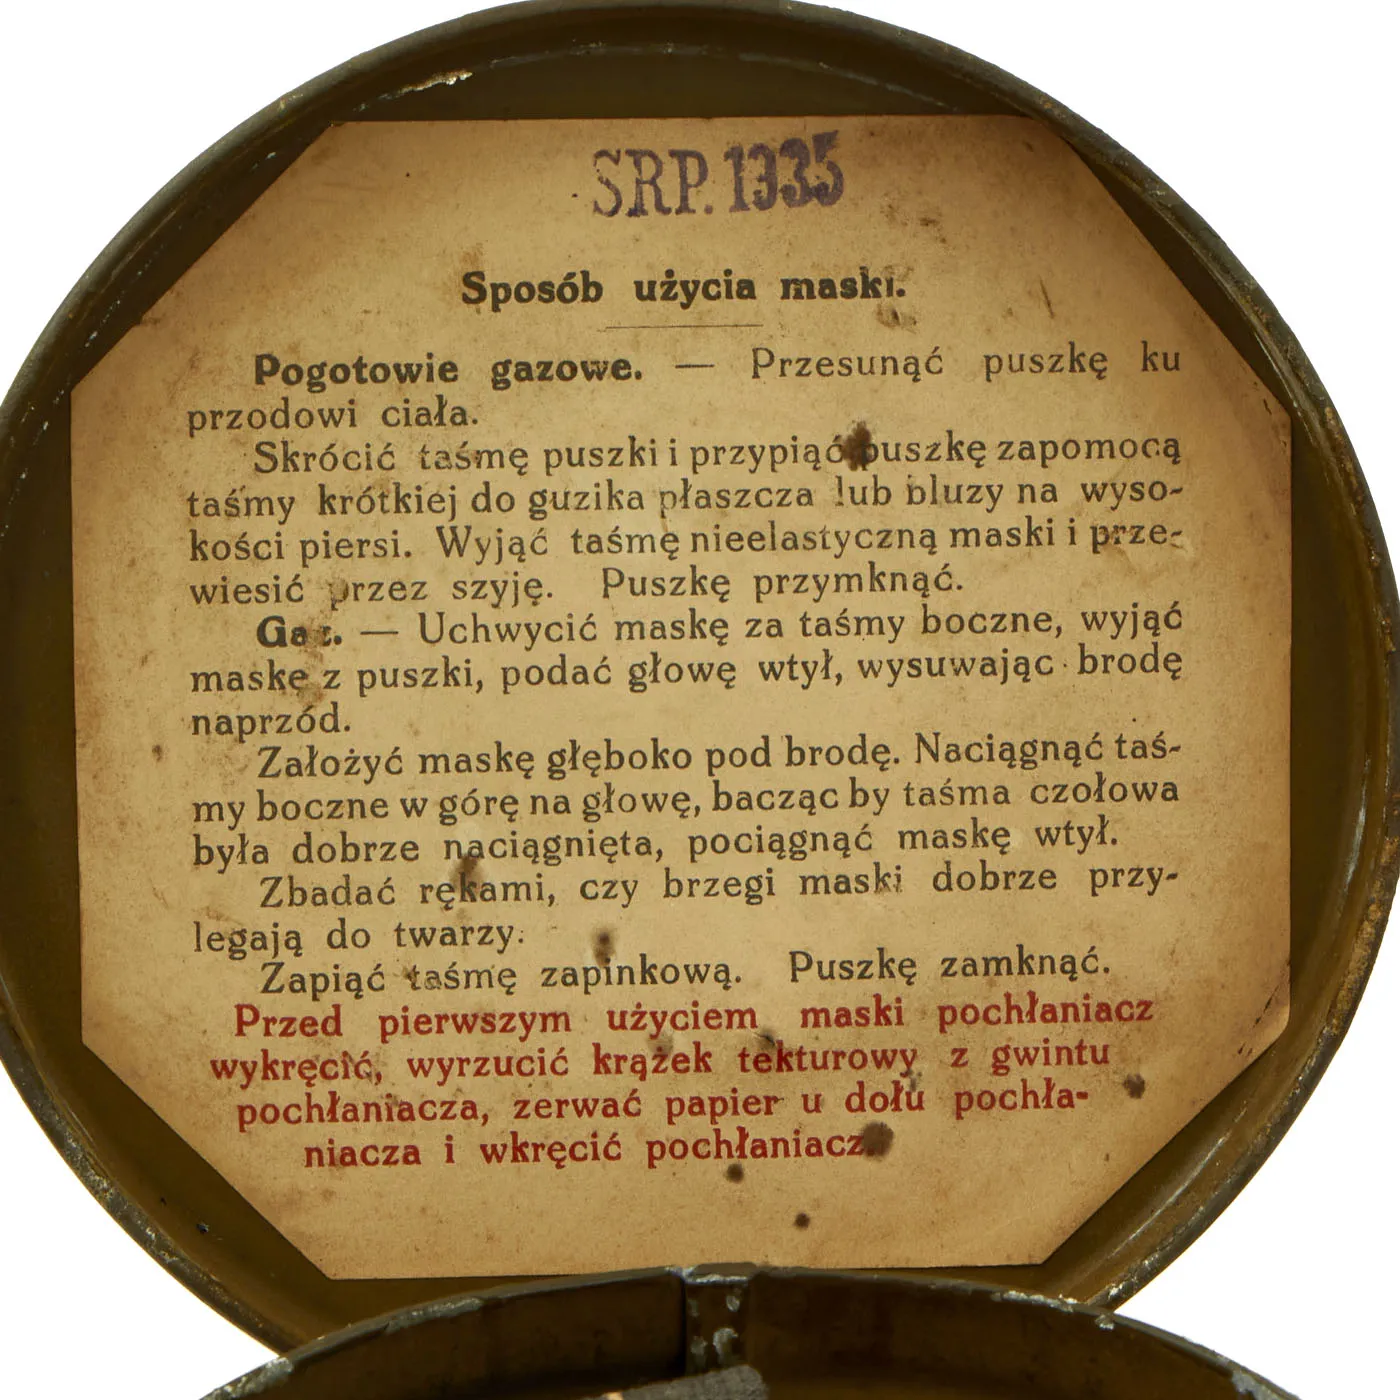 SRP. 1935
Sposób użycia maski.
Pogotowie gazowe. — Przesunąć puszkę ku
przodowi ciała.
Skrócić taśmę puszki i przypiąć puszkę zapomocą
taśmy krótkiej do guzika płaszcza lub bluzy na wyso-
kości piersi. Wyjąć taśmę nieelastyczną maski i prze-
wiesić przez szyję. Puszkę przymknąć.
Gaz. — Uchwycić maskę za taśmy boczne, wyjąć
maskę z puszki, podać głowę wtył, wysuwając brodę
naprzód.
Założyć maskę głęboko pod brodę. Naciągnąć taś-
my boczne w górę na głowę, bacząc by taśma czołowa
była dobrze naciągnięta, pociągnąć maskę wtył.
Zbadać rękami, czy brzegi maski dobrze przy-
legają do twarzy.
Zapiąć taśmę zapinkową. Puszkę zamknąć.
Przed pierwszym użyciem maski pochłaniacz
wykręcić, wyrzucić krążek tekturowy z gwintu
pochłaniacza, zerwać papier u dołu pochła-
niacza i wkręcić pochłaniacz.